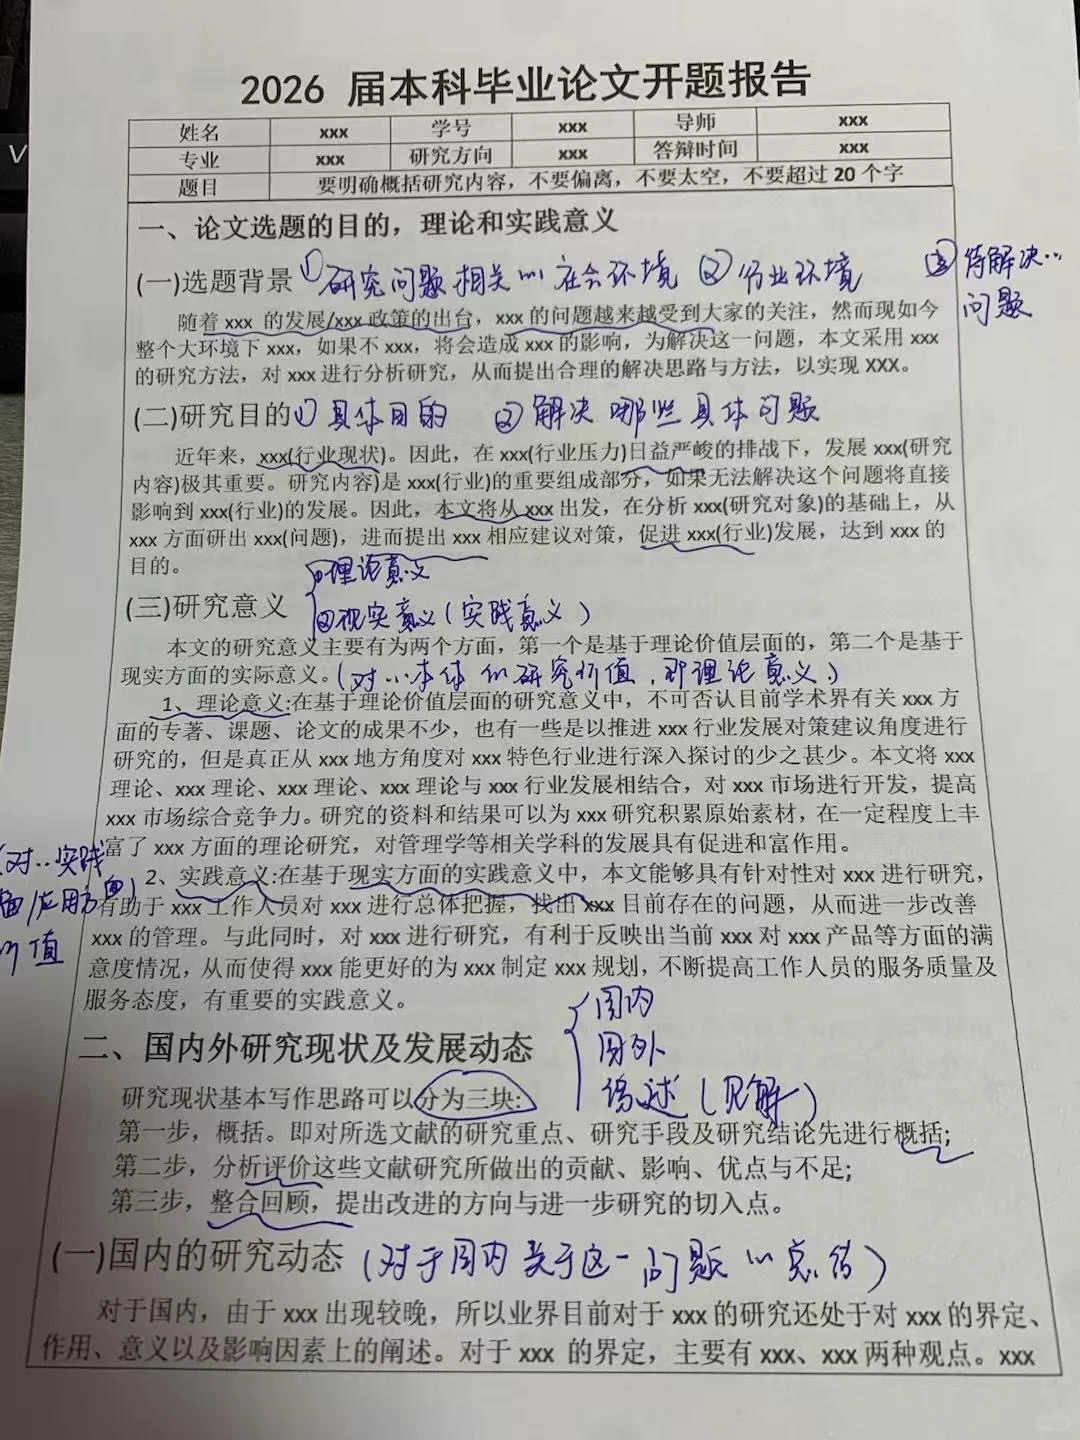 2026 届本科毕业论文开题报告
姓名 xxx 学号 xxx 导师 xxx
专业 xxx 研究方向 xxx 答辩时间 xxx
题目 要明确概括研究内容，不要偏离，不要太空，不要超过 20 个字
一、论文选题的目的，理论和实践意义
(一)选题背景 ①研究问题相关的社会环境 ②行业环境 ③待解决…
问题
随着 xxx 的发展/xxx 政策的出台，xxx 的问题越来越受到大家的关注，然而现如今
整个大环境下 xxx，如果不 xxx，将会造成 xxx 的影响，为解决这一问题，本文采用 xxx
的研究方法，对 xxx 进行分析研究，从而提出合理的解决思路与方法，以实现 XXX。
(二)研究目的 ①具体目的 ②解决哪些具体问题
近年来，xxx(行业现状)。因此，在 xxx(行业压力)日益严峻的排战下，发展 xxx(研究
内容)极其重要。研究内容)是 xxx(行业)的重要组成部分，如果无法解决这个问题将直接
影响到 xxx(行业)的发展。因此，本文将从 xxx 出发，在分析 xxx(研究对象)的基础上，从
xxx 方面研出 xxx(问题)，进而提出 xxx 相应建议对策，促进 xxx(行业)发展，达到 xxx 的
目的。
①理论意义
(三)研究意义 ②现实意义(实践意义)
本文的研究意义主要有为两个方面，第一个是基于理论价值层面的，第二个是基于
现实方面的实际意义。(对…本体的研究价值，即理论意义)
1、理论意义:在基于理论价值层面的研究意义中，不可否认目前学术界有关 xxx 方
面的专著、课题、论文的成果不少，也有一些是以推进 xxx 行业发展对策建议角度进行
研究的，但是真正从 xxx 地方角度对 xxx 特色行业进行深入探讨的少之甚少。本文将 xxx
理论、xxx 理论、xxx 理论、xxx 理论与 xxx 行业发展相结合，对 xxx 市场进行开发，提高
xxx 市场综合竞争力。研究的资料和结果可以为 xxx 研究积累原始素材，在一定程度上丰
富了 xxx 方面的理论研究，对管理学等相关学科的发展具有促进和富作用。
(对…实践
面/应用方面)
的价值
2、实践意义:在基于现实方面的实践意义中，本文能够具有针对性对 xxx 进行研究，
有助于 xxx 工作人员对 xxx 进行总体把握，找出 xxx 目前存在的问题，从而进一步改善
xxx 的管理。与此同时，对 xxx 进行研究，有利于反映出当前 xxx 对 xxx 产品等方面的满
意度情况，从而使得 xxx 能更好的为 xxx 制定 xxx 规划，不断提高工作人员的服务质量及
服务态度，有重要的实践意义。
二、国内外研究现状及发展动态
国内
国外
综述(见解)
研究现状基本写作思路可以分为三块:
第一步，概括。即对所选文献的研究重点、研究手段及研究结论先进行概括;
第二步，分析评价这些文献研究所做出的贡献、影响、优点与不足;
第三步，整合回顾，提出改进的方向与进一步研究的切入点。
(一)国内的研究动态 (对于国内关于这一问题的总结)
对于国内，由于 xxx 出现较晚，所以业界目前对于 xxx 的研究还处于对 xxx 的界定、
作用、意义以及影响因素上的阐述。对于 xxx 的界定，主要有 xxx、xxx 两种观点。xxx